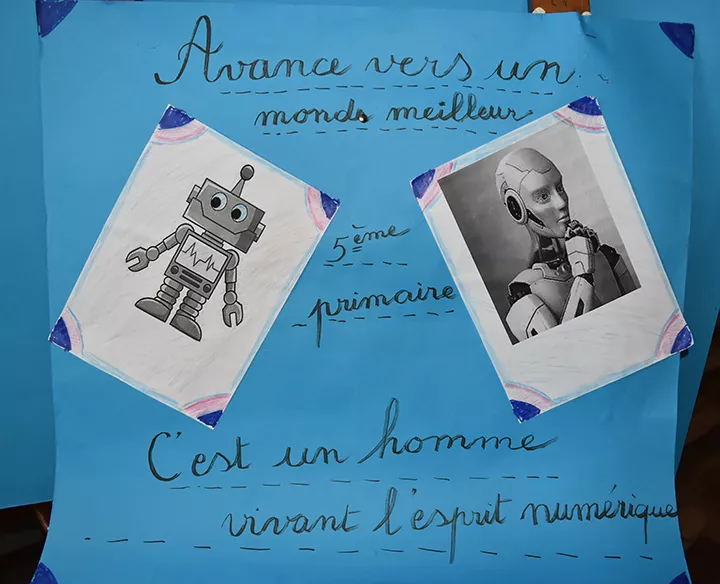 Avance vers un
monde meilleur
5ème
primaire
C'est un homme
vivant l'esprit numérique